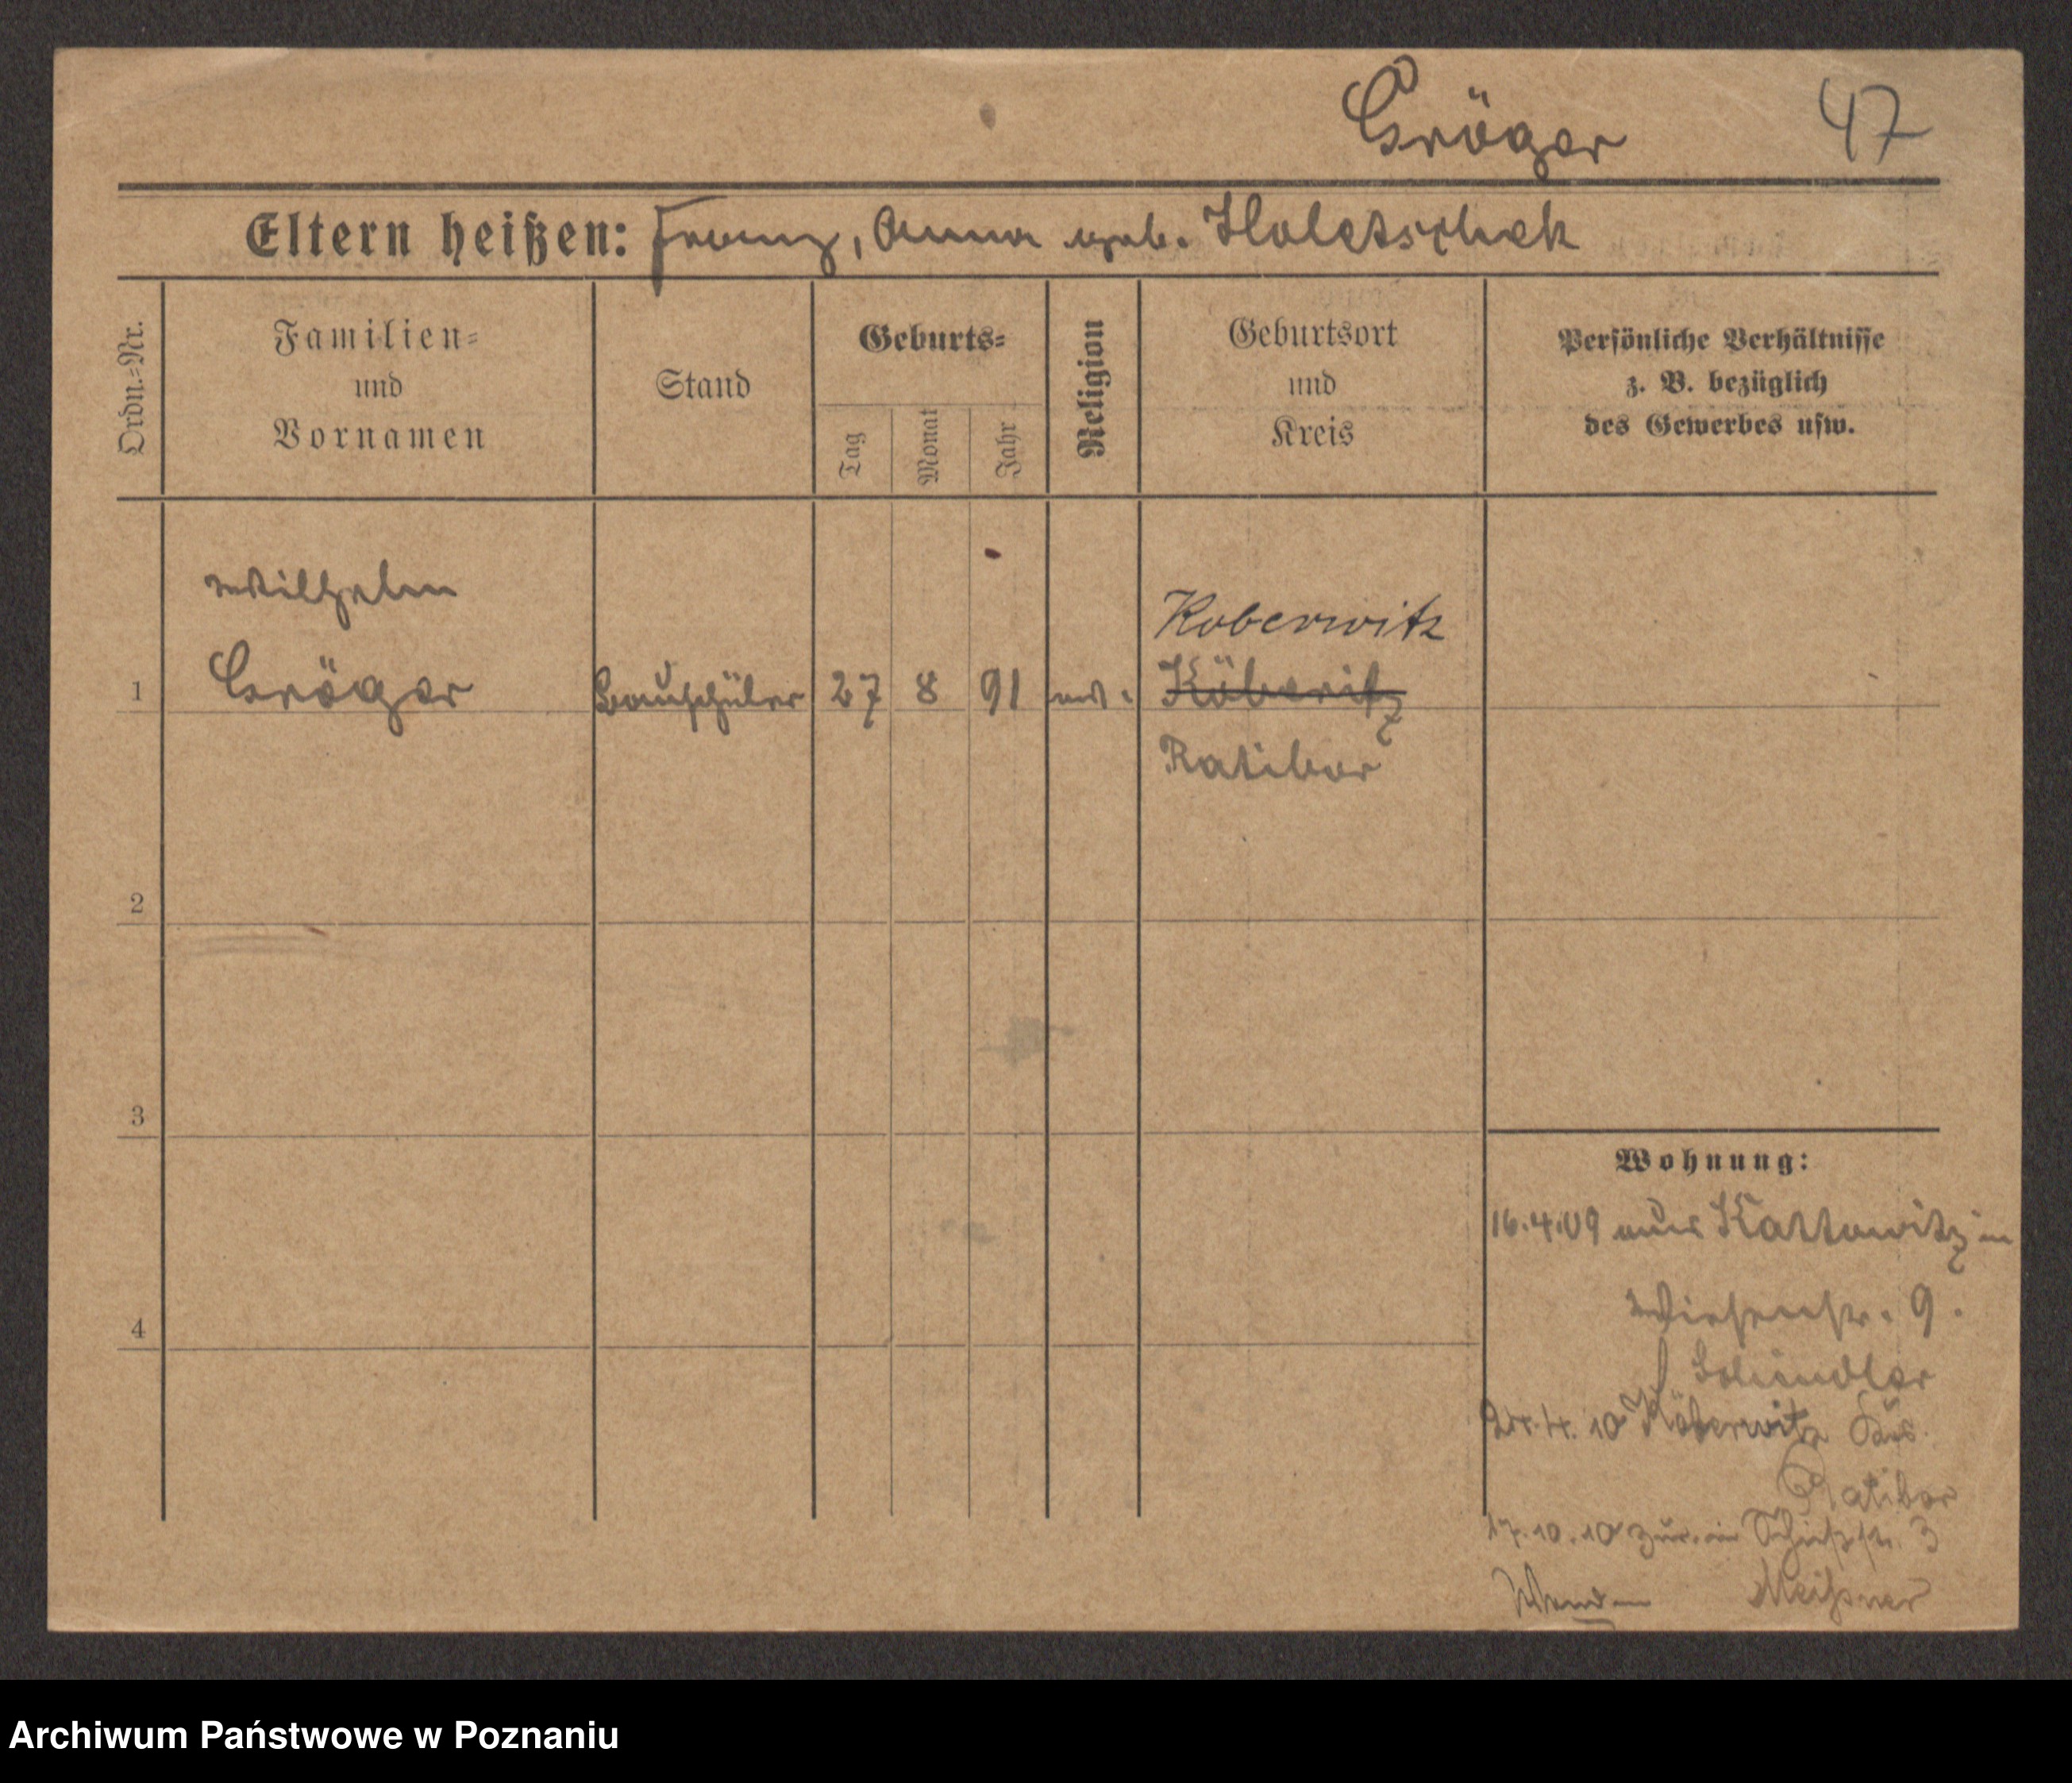 Gröger 47
Eltern heißen: Franz, Anna geb. Holetschek
Ordn.=Nr.
Familien=
und
Vornamen
Stand
Geburts=
Tag
Monat
Jahr
Religion
Geburtsort
und
Kreis
Persönliche Verhältnisse
z. B. bezüglich
des Gewerbes usw.
Wilhelm
Koberwitz
1 Gröger Bauschüler 27 8 91 Köberitz
Ratibor
2
3
4
Wohnung:
16.4.09 aus Kattowitz in
Wiesenstr. 9.
b Schindler
24.4.10 Köberwitz Krs.
Ratibor
17.10.10 zur. in Schießstr. 3
Meißner
Archiwum Państwowe w Poznaniu